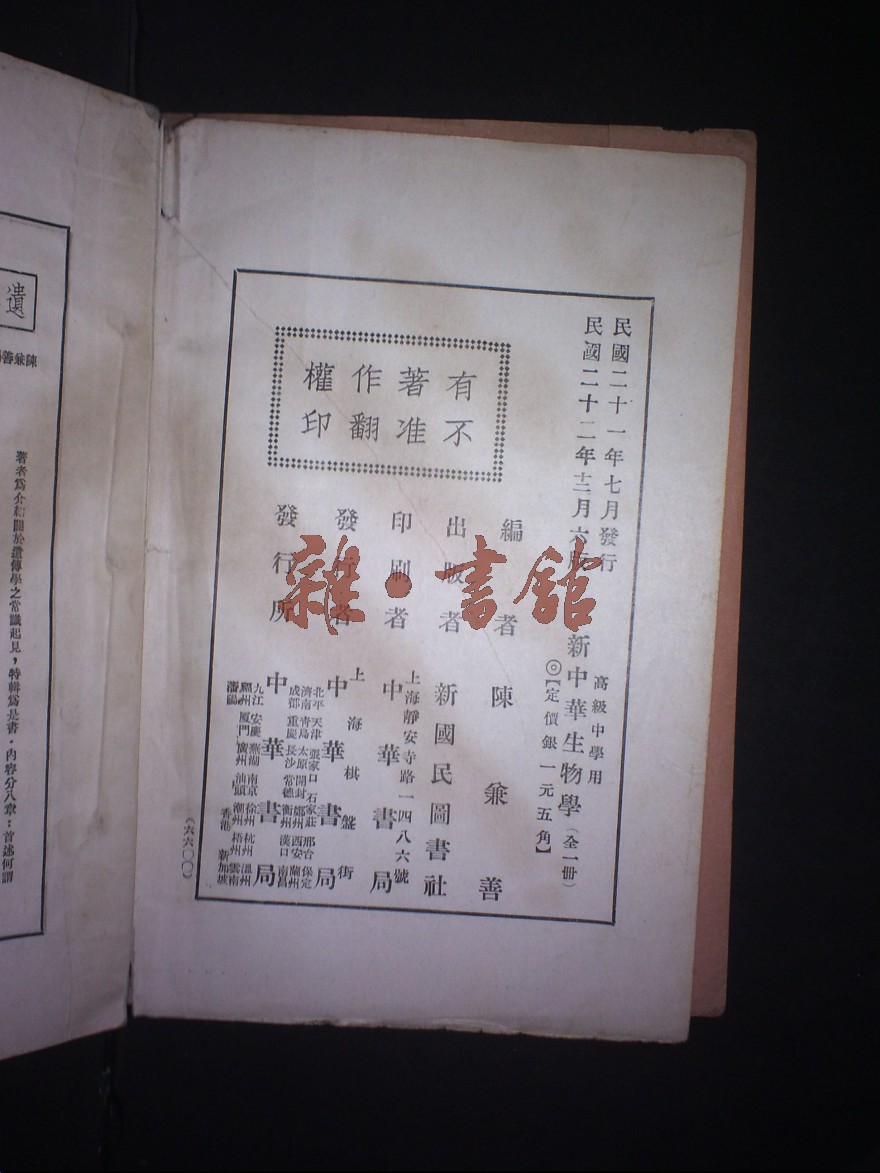 民國二十一年七月發行
民國二十二年十二月六版
高級中學用
新中華生物學（全一冊）
◎【定價銀一元五角】
有不
著准
作翻
權印
編者 陳兼善
出版者 新國民圖書社
上海靜安寺路一四八六號
印刷者 中華書局
上海棋盤街
發行者 中華書局
發行所 中華書局
北平 天津 張家口 石家莊 邢台 保定
濟南 青島 太原 開封 鄭州 西安 蘭州
成都 重慶 長沙 常德 衡州 漢口 南昌
九江 安慶 蕪湖 南京 徐州 杭州 溫州
福州 厦門 廣州 汕頭 潮州 梧州 雲南
瀋陽 香港 新加坡
（六六〇〇）
雜·書館
遺
陳兼善
著者爲介紹關於遺傳學之常識起見，特輯爲是書．內容分八章：首述何謂